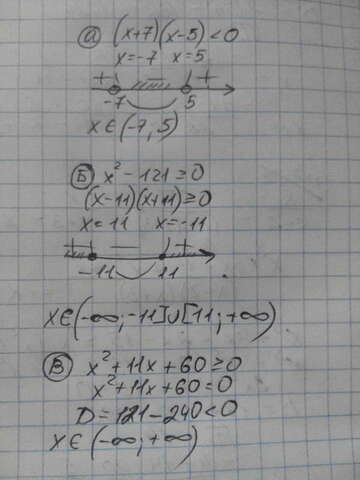 а) (x+7)(x-5)<0
x=-7 x=5
+ — +
-7 5
x∈(-7; 5)
Б) x²-121≥0
(x-11)(x+11)≥0
x=11 x=-11
+ — +
-11 11
x∈(-∞;-11]∪[11;+∞)
В) x²+11x+60≥0
x²+11x+60=0
D=121-240<0
x∈(-∞;+∞)